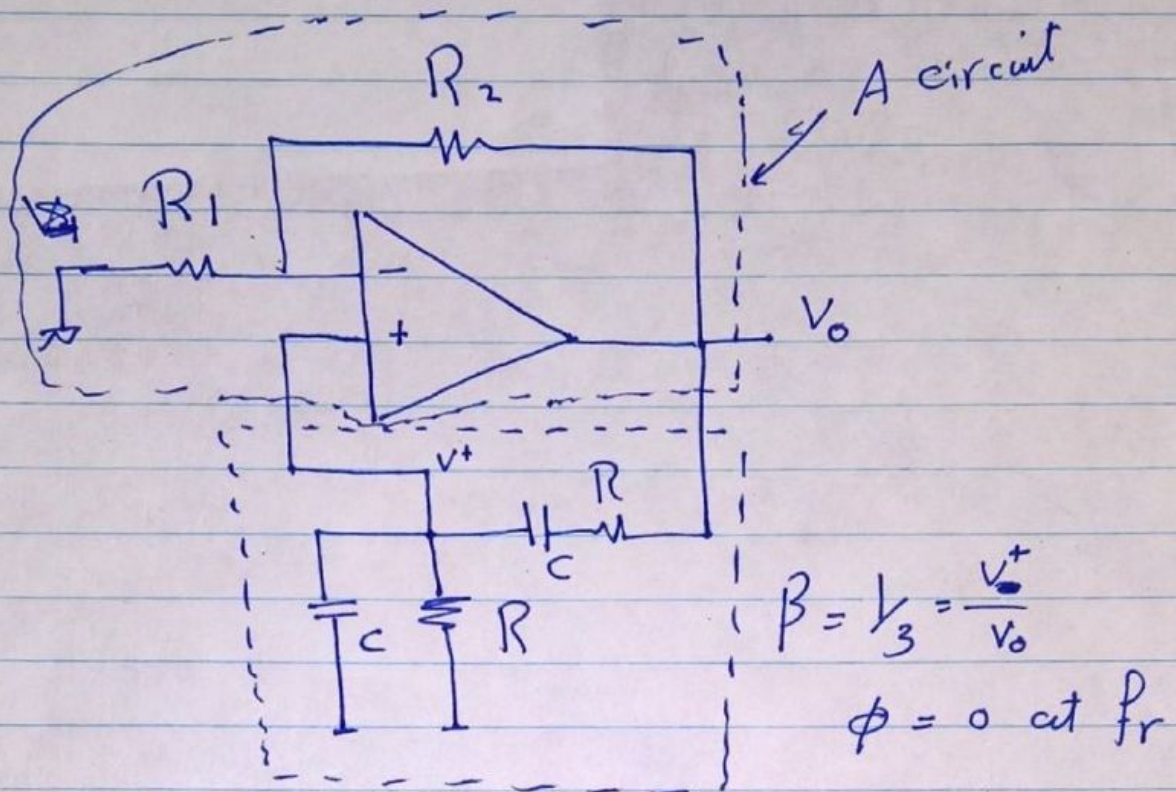 R2
A circuit
R1
−
+
V0
V+
R
C
C
R
β = 1/3 = V+/V0
φ = 0 at fr